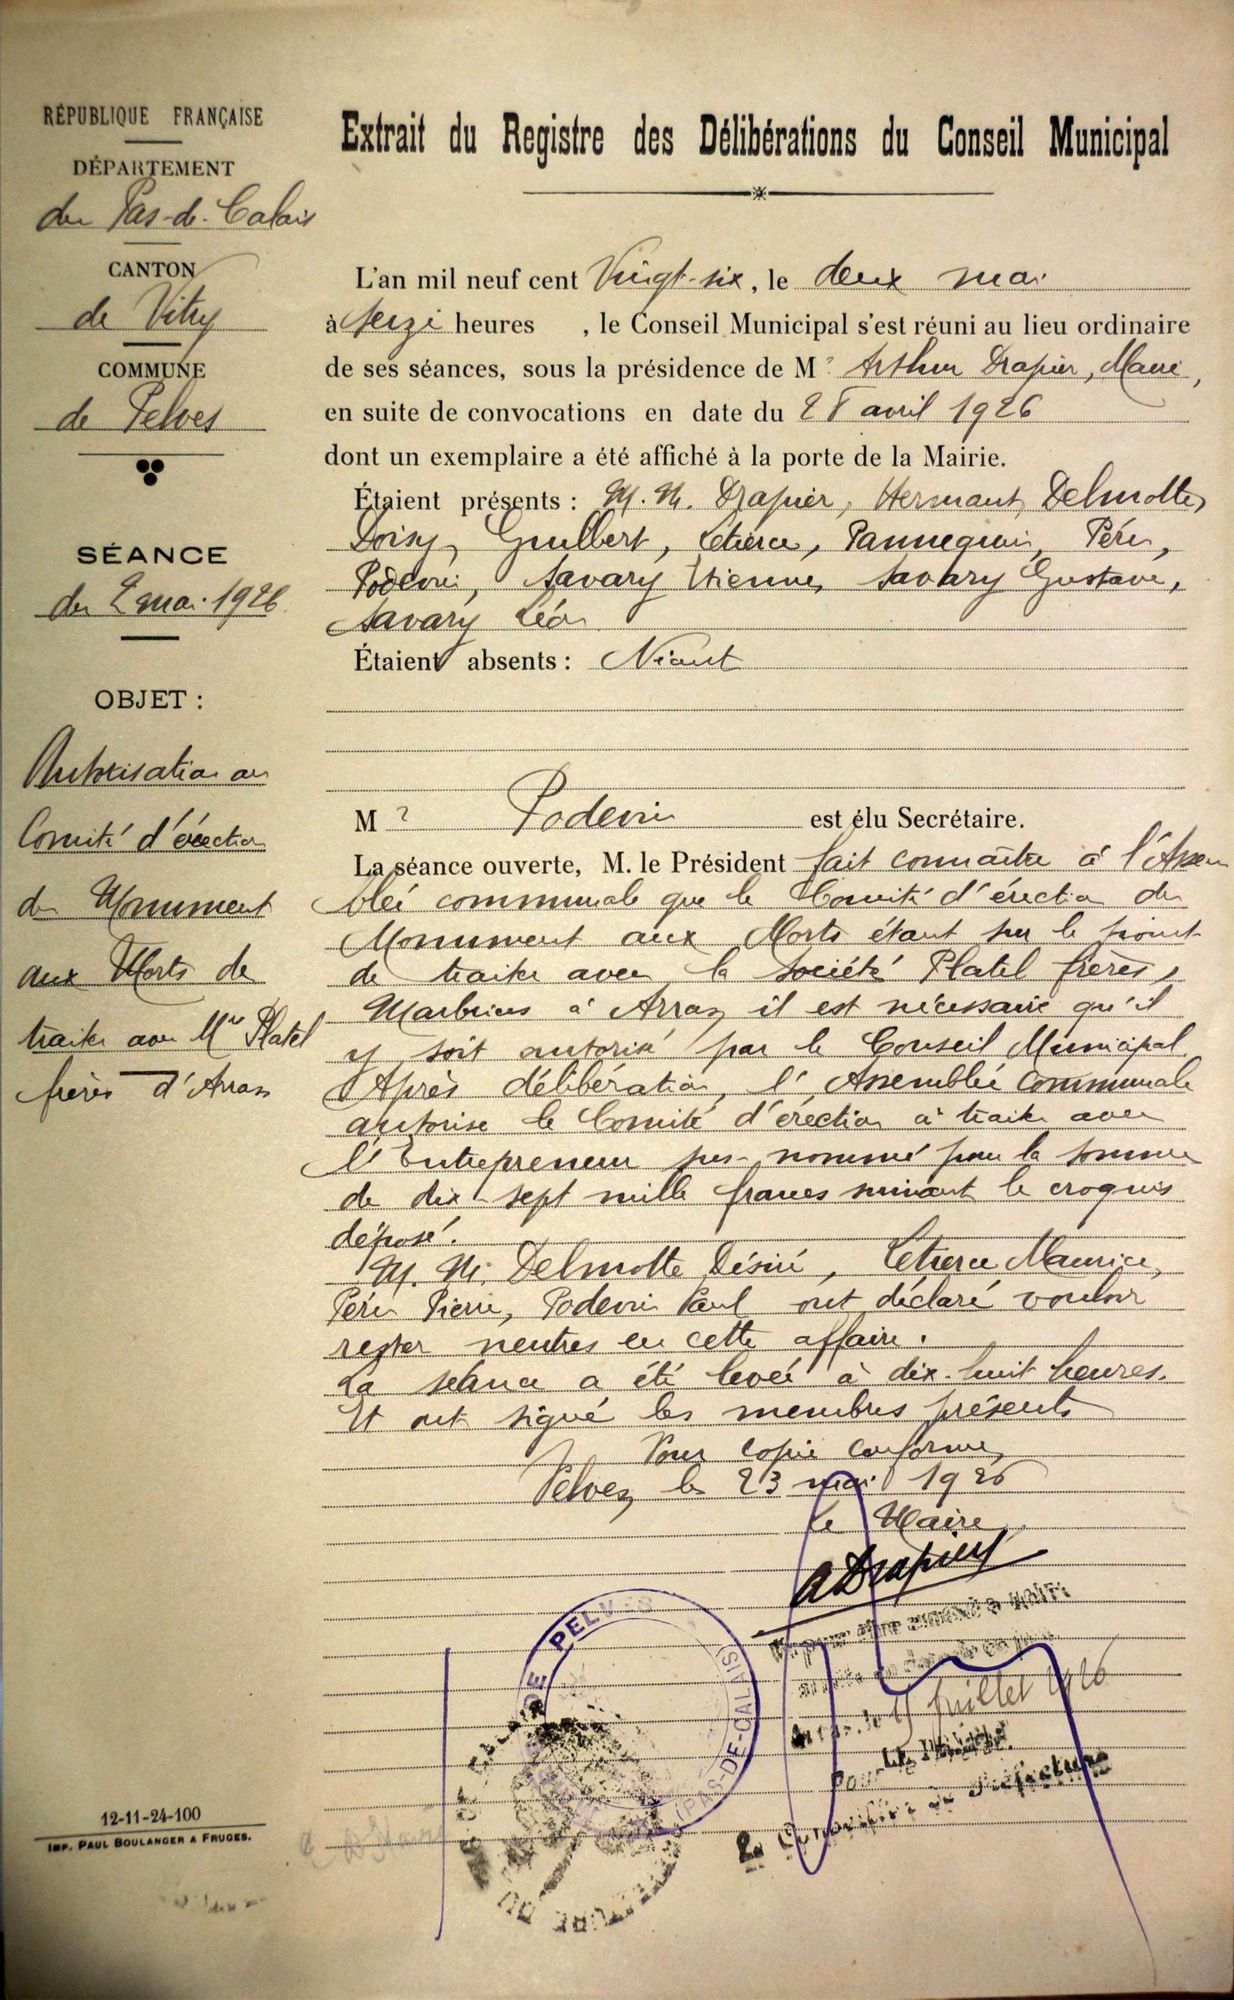 RÉPUBLIQUE FRANÇAISE
DÉPARTEMENT
du Pas-de-Calais
CANTON
de Vitry
COMMUNE
de Pelves
SÉANCE
du 2 mai 1926
OBJET :
Autorisation au
Comité d'érection
du Monument
aux Morts de
traiter avec Mrs Platel
frères d'Arras
12-11-24-100
IMP. PAUL BOULANGER A FRUGES.
Extrait du Registre des Délibérations du Conseil Municipal
L'an mil neuf cent Vingt-six, le deux mai
à seize heures , le Conseil Municipal s'est réuni au lieu ordinaire
de ses séances, sous la présidence de Mr Arthur Drapier, Maire,
en suite de convocations en date du 28 avril 1926
dont un exemplaire a été affiché à la porte de la Mairie.
Étaient présents : M.M. Drapier, Hermant, Delmotte,
Doisy, Guilbert, Letierce, Pannequin, Péru,
Podevin, Savary Etienne, Savary Gustave,
Savary Léon
Étaient absents : Néant
Mr Podevin est élu Secrétaire.
La séance ouverte, M. le Président fait connaître à l'Assem
blée communale que le Comité d'érection du
Monument aux Morts étant sur le point
de traiter avec la Société Platel frères,
Marbriers à Arras, il est nécessaire qu'il
y soit autorisé par le Conseil Municipal.
Après délibération, l'Assemblée Communale
autorise le Comité d'érection à traiter avec
l'Entrepreneur sus-nommé pour la somme
de dix-sept mille francs suivant le croquis
déposé.
M.M. Delmotte Désiré, Letierce Maurice,
Péru Pierre, Podevin Paul ont déclaré vouloir
rester neutres en cette affaire.
La séance a été levée à dix-huit heures.
Et ont signé les membres présents
Pour copie conforme,
Pelves, le 23 mai 1926
Le Maire,
ADrapier
DE PELVES
(PAS-DE-CALAIS)
Juillet 1926
LE PRÉFET.
Pour
Le Conseiller de Préfecture